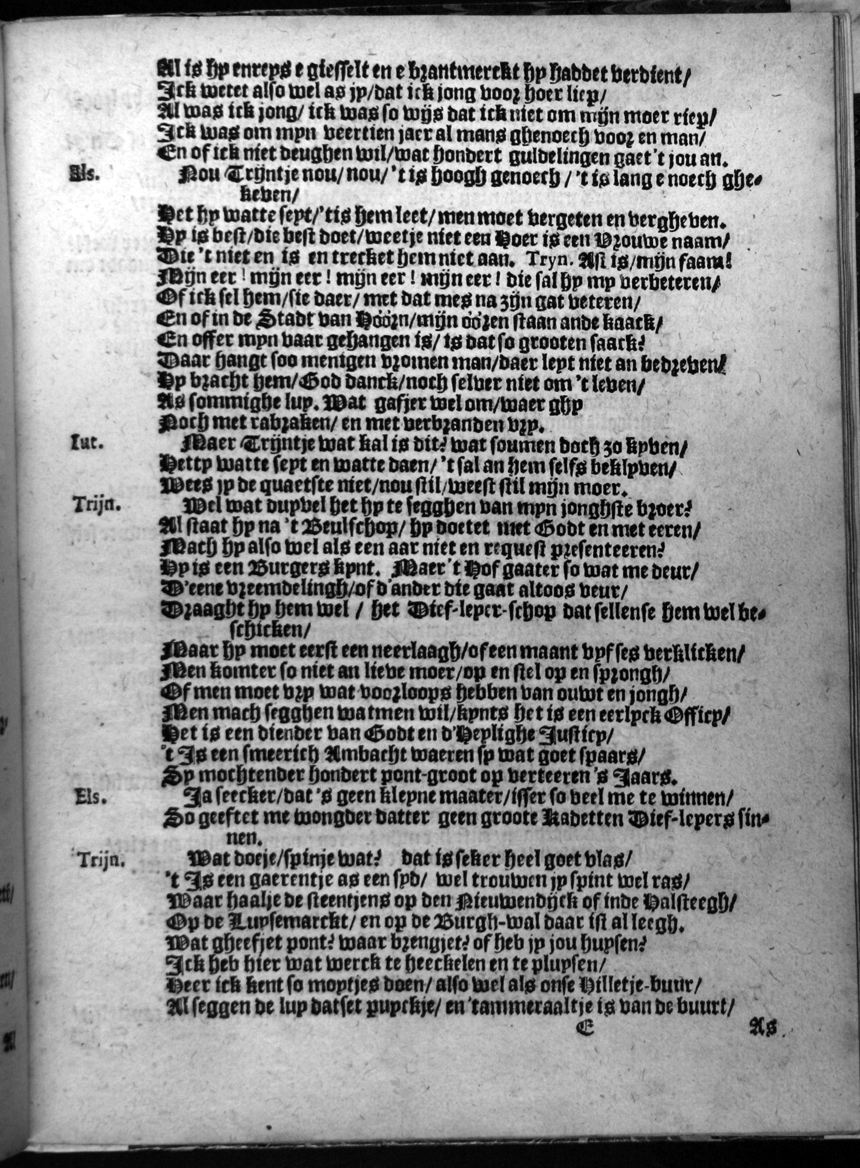 Al is hy enreys e giesselt en e brantmerckt hy haddet verdient/
Ick wetet also wel as jy/dat ick jong voor hoer liep/
Al was ick jong/ ick was so wijs dat ick niet om mijn moer riep/
Ick was om myn veertien jaer al mans ghenoech voor en man/
En of ick niet deughen wil/wat hondert guldelingen gaet't jou an.
Els. Nou Trijntje nou/ nou/ 't is hoogh genoech / 't is lang e noech ghe-
keven/
Het hy watte seyt/'tis hem leet/ men moet vergeten en vergheven.
Hy is best/die best doet/weetje niet een Hoer is een Vrouwe naam/
Die 't niet en is en trecket hem niet aan. Tryn. Ast is/mijn faam!
Mijn eer! mijn eer! mijn eer! mijn eer! die sal hy my verbeteren/
Of ick sel hem/sie daer/ met dat mes na zijn gat veteren/
En of in de Stadt van Höörn/mijn öören staan ande kaack/
En offer myn vaar gehangen is/ is dat so grooten saack?
Daar hangt soo menigen vromen man/daer leyt niet an bedreven/
Hy bracht hem/God danck/noch selver niet om 't leven/
As sommighe luy. Wat gafjer wel om/waer ghy
Noch met rabraken/ en met verbranden vry.
Iut. Maer Trijntje wat kal is dit? wat soumen doch zo kyven/
Hetty watte seyt en watte daen/ 't sal an hem selfs beklyven/
Wees jy de quaetste niet/nou stil/weest stil mijn moer.
Trijn. Wel wat duyvel het hy te segghen van myn jonghste broer?
Al staat hy na 't Beulschop/ hy doetet met Godt en met eeren/
Mach hy also wel als een aar niet en request presenteeren?
Hy is een Burgers kynt. Maer 't Hof gaater so wat me deur/
D'eene vreemdelingh/of d'ander die gaat altoos veur/
Draaght hy hem wel / het Dief-leyer-schop dat sellense hem wel be-
schicken/
Maar hy moet eerst een neerlaagh/of een maant vyf ses verklicken/
Men komter so niet an lieve moer/op en stel op en sprongh/
Of men moet vry wat voorloops hebben van ouwt en jongh/
Men mach segghen watmen wil/kynts het is een eerlyck Officy/
Het is een diender van Godt en d'Heylighe Justicy/
't Is een smeerich Ambacht waeren sy wat goet spaars/
Sy mochtender hondert pont-groot op verteeren 's Jaars.
Els. Ja seecker/dat 's geen kleyne maater/isser so veel me te winnen/
So geeftet me wongder datter geen groote Kadetten Dief-leyers sin-
nen.
Trijn. Wat doeje/spinje wat? dat is seker heel goet vlas/
't Is een gaerentje as een syd/ wel trouwen jy spint wel ras/
Waar haalje de steentjens op den Nieuwendijck of inde Halsteegh/
Op de Luysemarckt/ en op de Burgh-wal daar ist al leegh.
Wat gheefjet pont? waar brengjet? of heb jy jou huysen?
Ick heb hier wat werck te heeckelen en te pluysen/
Heer ick kent so moytjes doen/ also wel als onse Hilletje-buur/
Al seggen de luy datset puyckje/ en 'tammeraaltje is van de buurt/
E As